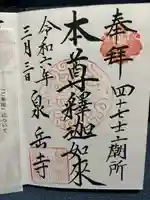 奉拝
四十七士廟所
本尊釋迦如來
泉岳寺
令和六年
三月三日